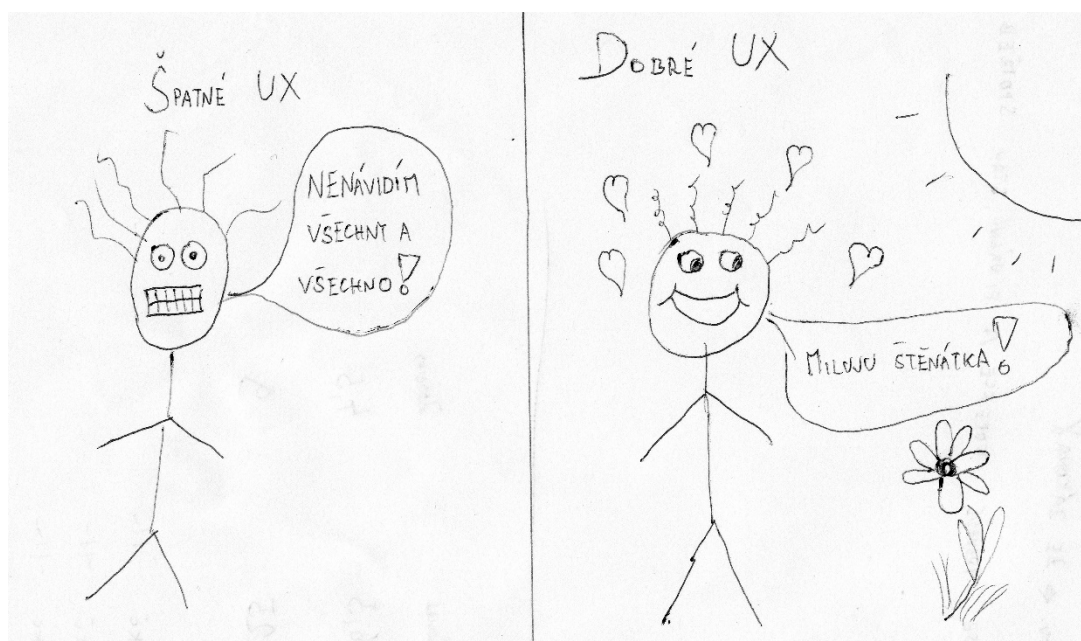 ŠPATNÉ UX
NENÁVIDÍM
VŠECHNY A
VŠECHNO!
DOBRÉ UX
MILUJU ŠTĚŇÁTKA!